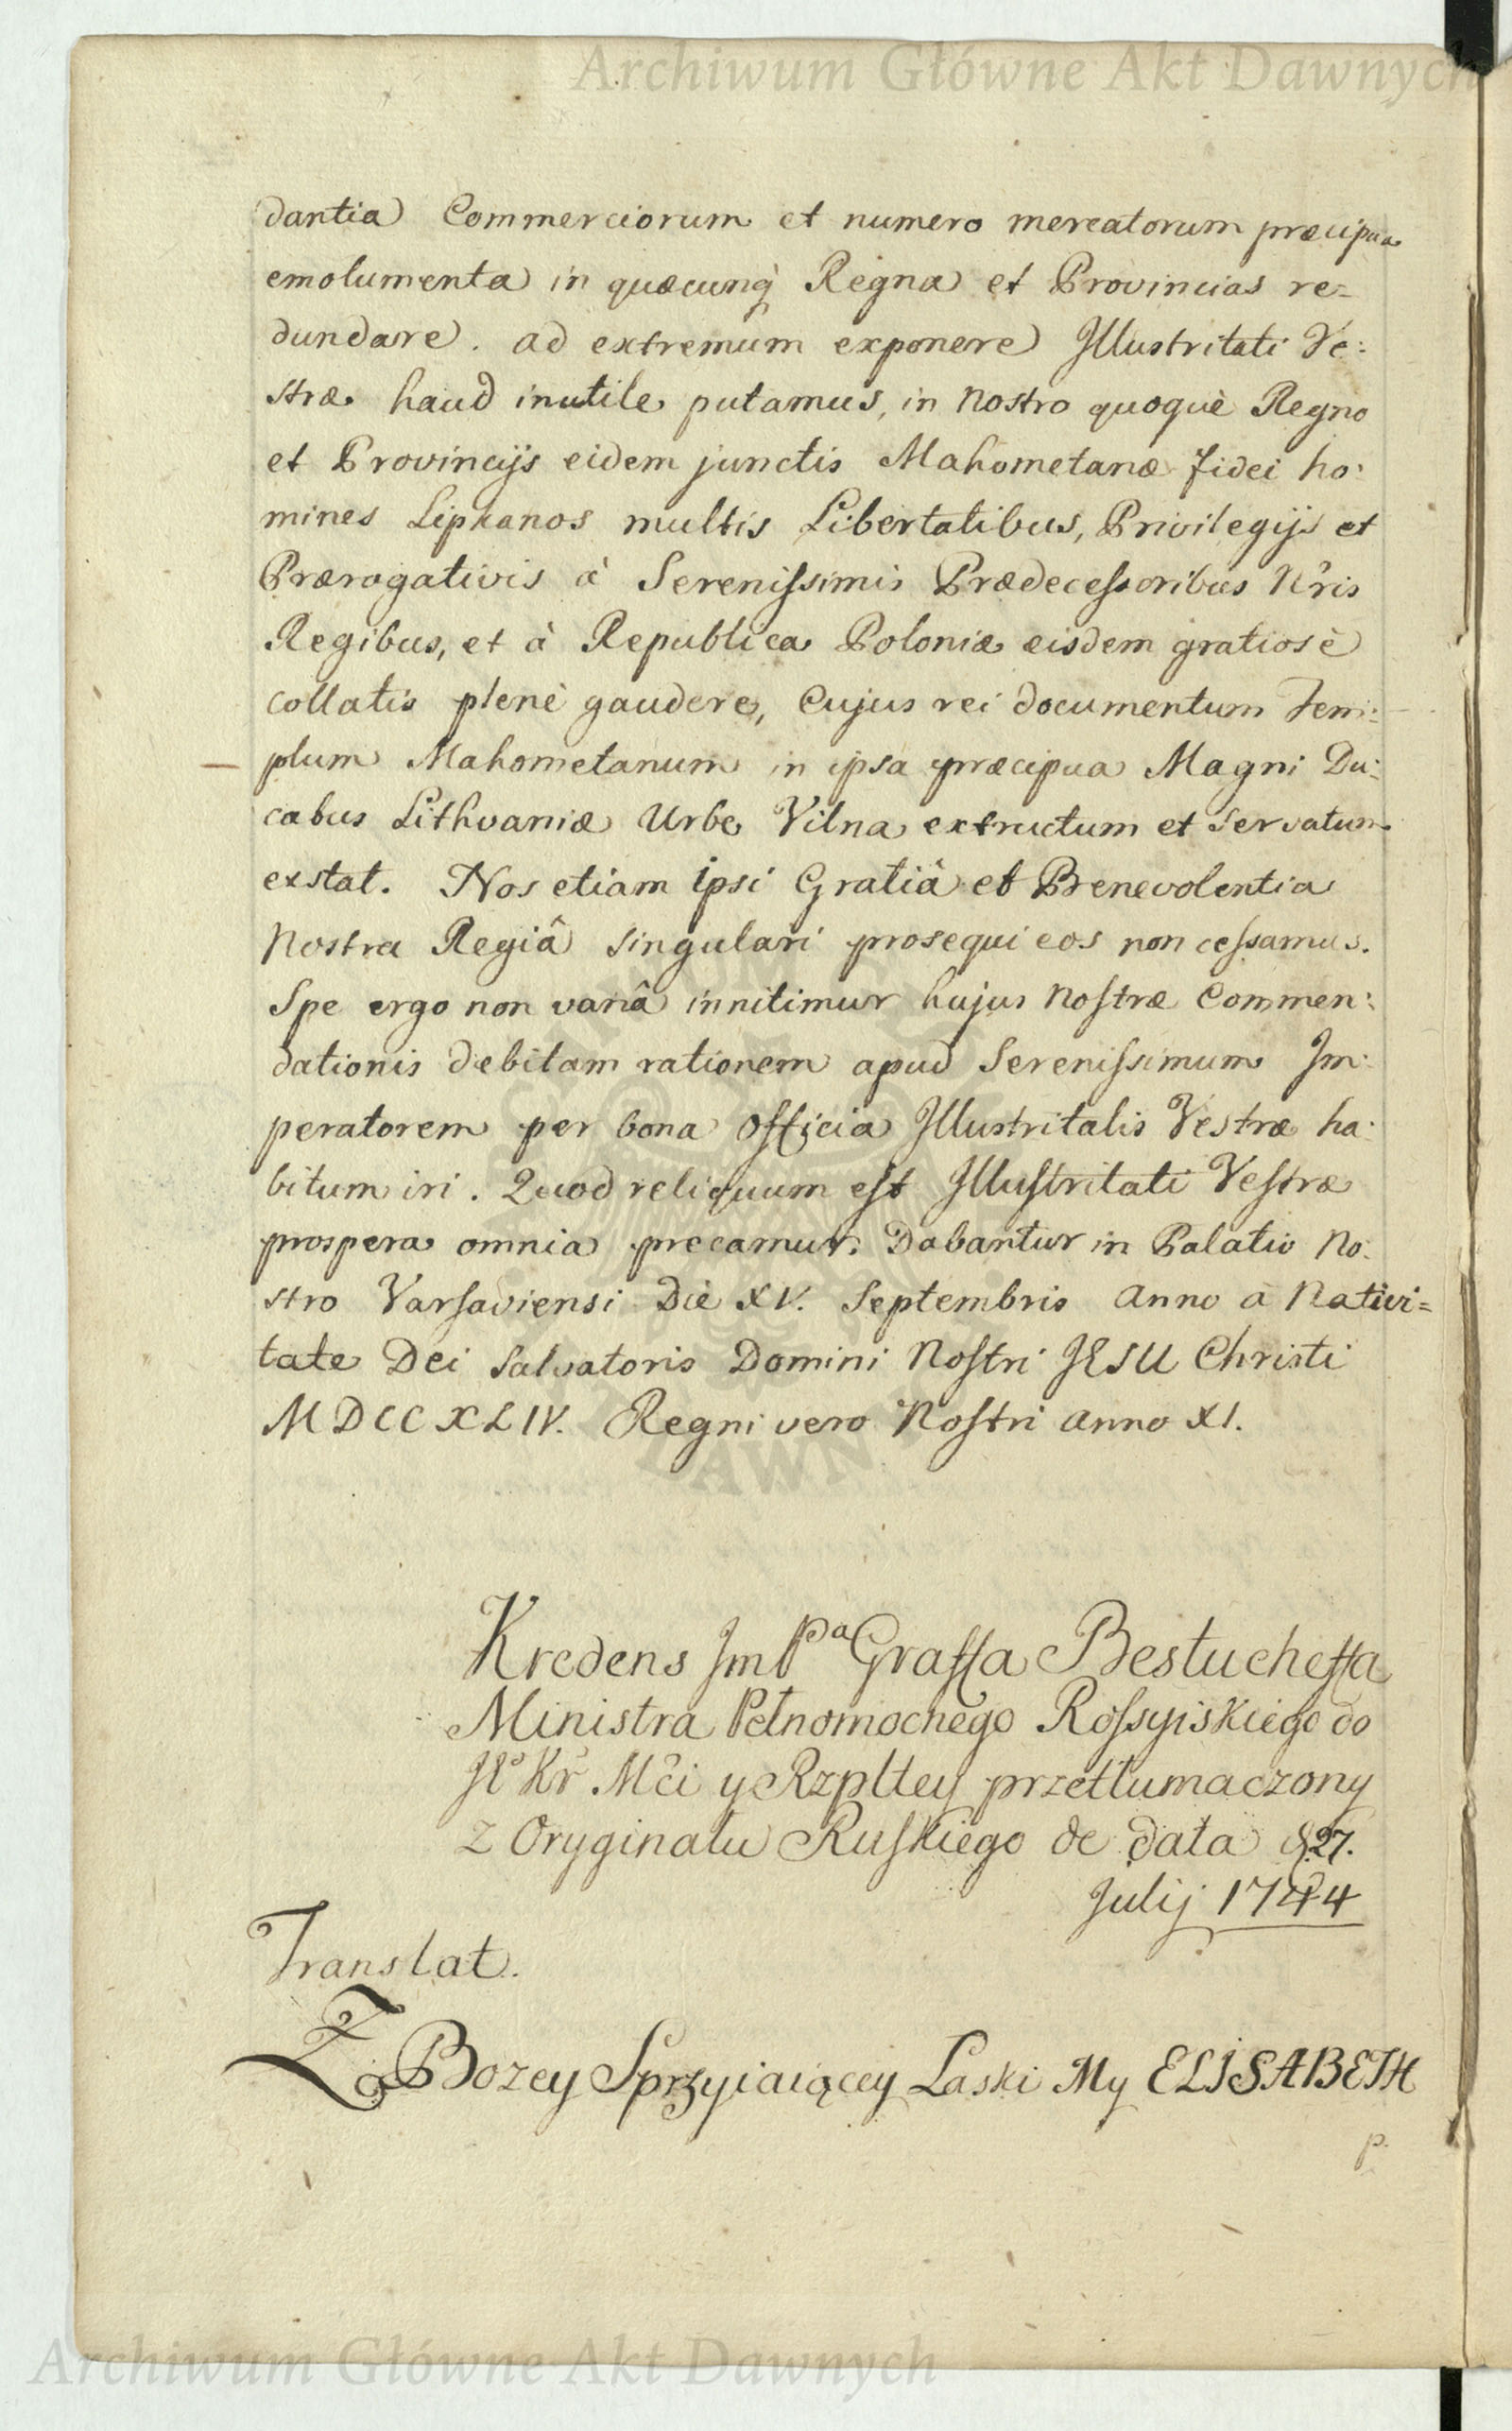 Archiwum Główne Akt Dawnych
dantia Commerciorum et numero mercatorum præcipua
emolumenta in quæcunq̀ Regna et Provincias re=
dundare. ad extremum exponere Jllustritati Ve:
stræ haud inutile putamus, in Nostro quoquè Regno
et Provincijs eidem junctis Mahometanæ fidei ho:
mines Lipkanos multis Libertatibus, Privilegijs et
Prærogativis à Serenissimis Prædecessoribus N̂ris
Regibus, et à Republica Poloniæ eisdem gratiosè
collatis plenè gaudere, Cujus rei documentum Tem:
plum Mahometanum in ipsa præcipua Magni Du:
catus Lithvaniæ Urbe Vilna extructum et servatum
exstat. Nos etiam ipsi Gratiâ et Benevolentia
Nostra Regiâ singulari prosequi eos non cessamus.
Spe ergo non vanâ innitimur hujus Nostræ Commen:
dationis debitam rationem apud Serenissimum Jm:
peratorem per bona officia Jllustritatis Vestræ ha:
bitum iri. Quod reliquum est Jllustritati Vestræ
prospera omnia precamur. Dabantur in Palatio No:
stro Varsaviensi Diè XV. Septembris Anno à Nativi=
tate Dei Salvatoris Domini Nostri JESU Christi
MDCCXLIV. Regni vero Nostri Anno XI.
Kredens JmPᵃ Graffa Bestucheffa
Ministra Pełnomocnego Rossyiskiego do
JKº Kr̂ Mĉi y Rzpltey przetłumaczony
z Oryginału Ruskiego de data 27.
Julij 1744
Translat.
Z Bozey Sprzyiaiącey Łaski My ELISABETH
p.
Archiwum Główne Akt Dawnych